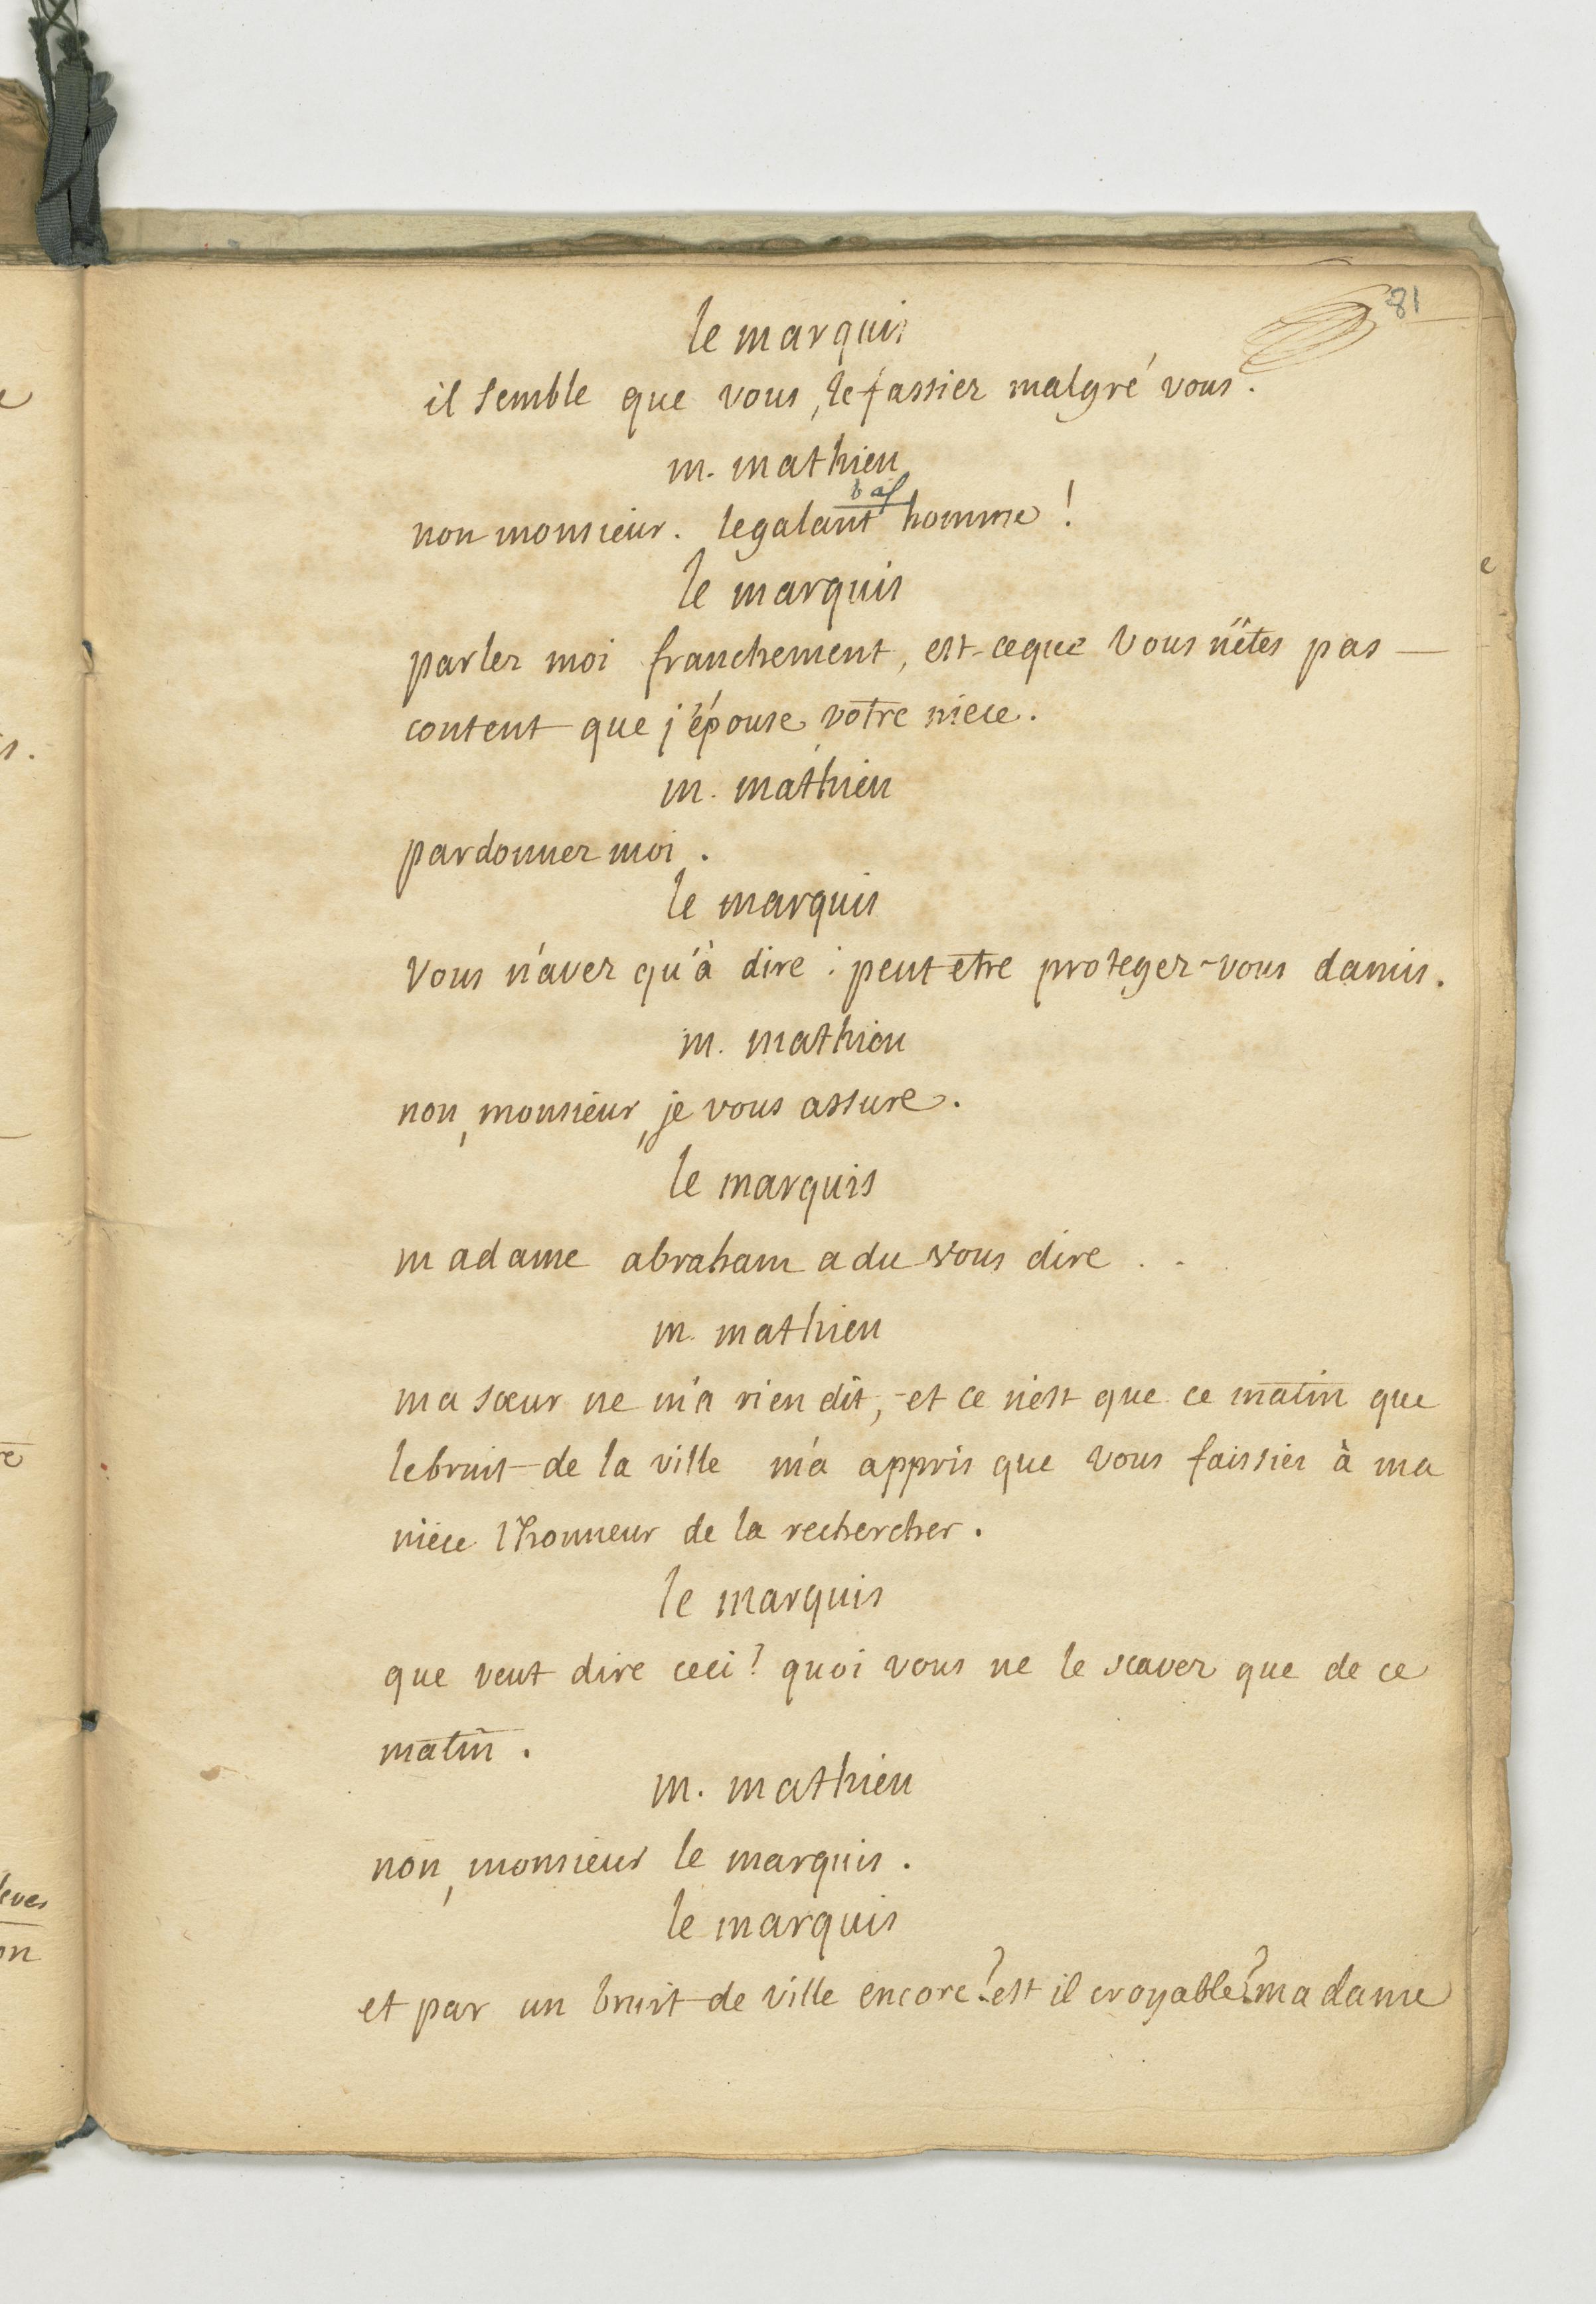 81
le marquis
il semble que vous le fassiez malgré vous.
m. mathieu
bas
non monsieur. le galant homme !
le marquis
parlez moi franchement, est-ce que vous n'êtes pas
content que j'épouse votre niece.
m. mathieu
pardonnez moi.
le marquis
vous n'avez qu'à dire : peut etre protegez-vous damis.
m. mathieu
non, monsieur, je vous assure.
le marquis
madame abraham a du vous dire . .
m. mathieu
ma sœur ne m'a rien dit, et ce n'est que ce matin que
le bruit de la ville m'a appris que vous faissiez à ma
niece l'honneur de la rechercher.
le marquis
que veut dire ceci ? quoi vous ne le scavez que de ce
matin.
m. mathieu
non, monsieur le marquis.
le marquis
et par un bruit de ville encore ! est il croyable ? madame